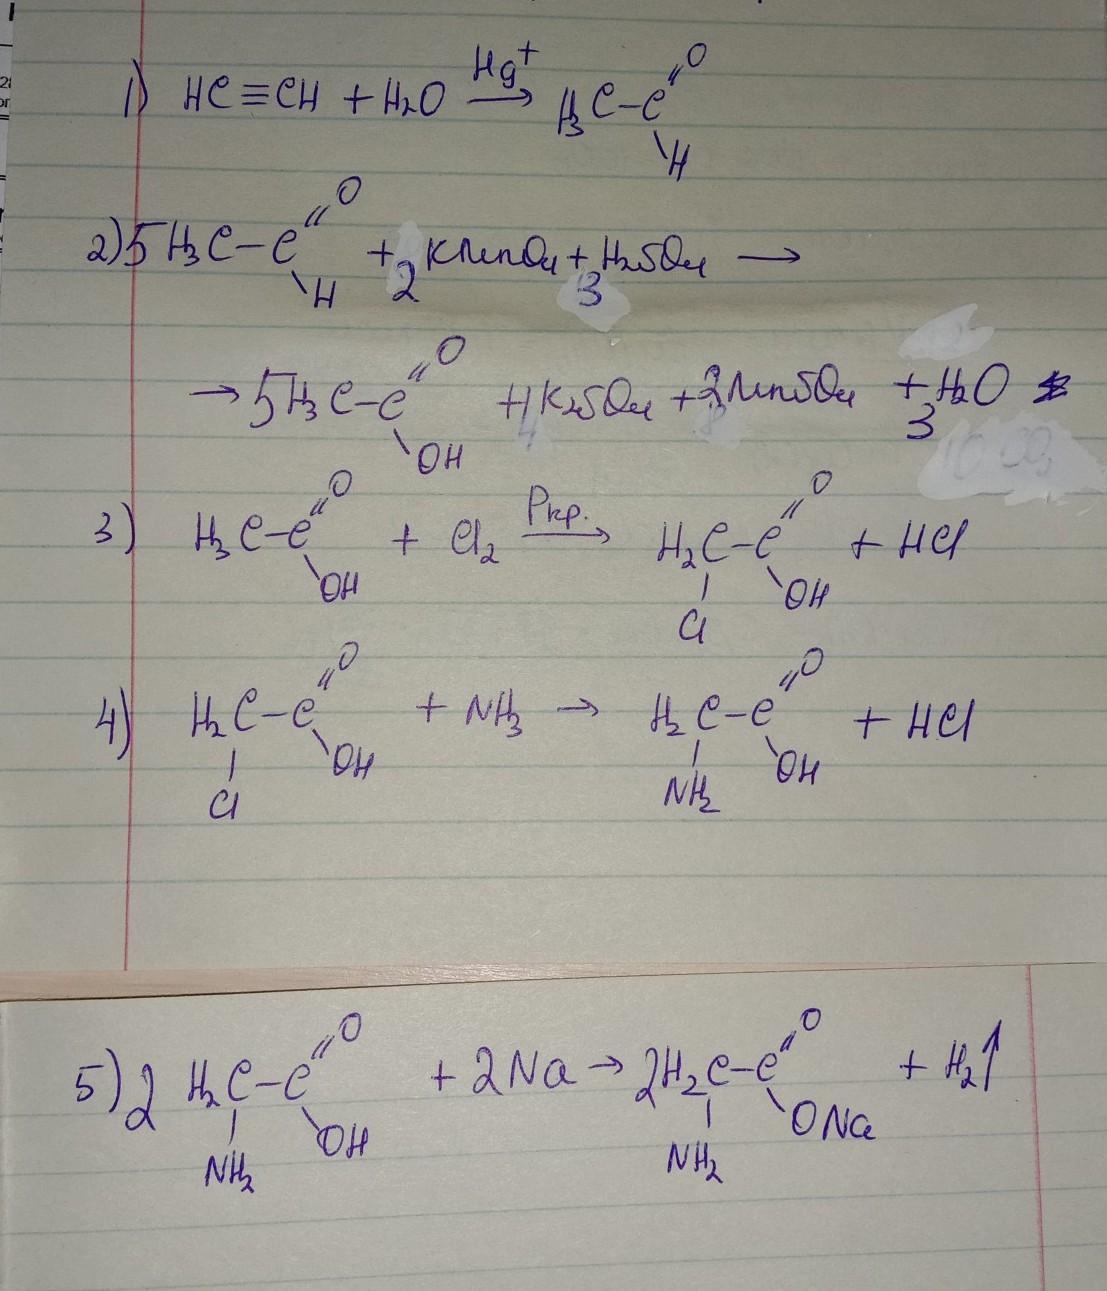 1) HC≡CH + H₂O —Hg⁺→ H₃C–C(=O)–H
2) 5 H₃C–C(=O)–H + 2 KMnO₄ + 3 H₂SO₄ →
→ 5 H₃C–C(=O)–OH + 1 K₂SO₄ + 2 MnSO₄ + 3 H₂O
3) H₃C–C(=O)–OH + Cl₂ —Pкр.→ H₂C(Cl)–C(=O)–OH + HCl
4) H₂C(Cl)–C(=O)–OH + NH₃ → H₂C(NH₂)–C(=O)–OH + HCl
5) 2 H₂C(NH₂)–C(=O)–OH + 2Na → 2H₂C(NH₂)–C(=O)–ONa + H₂↑